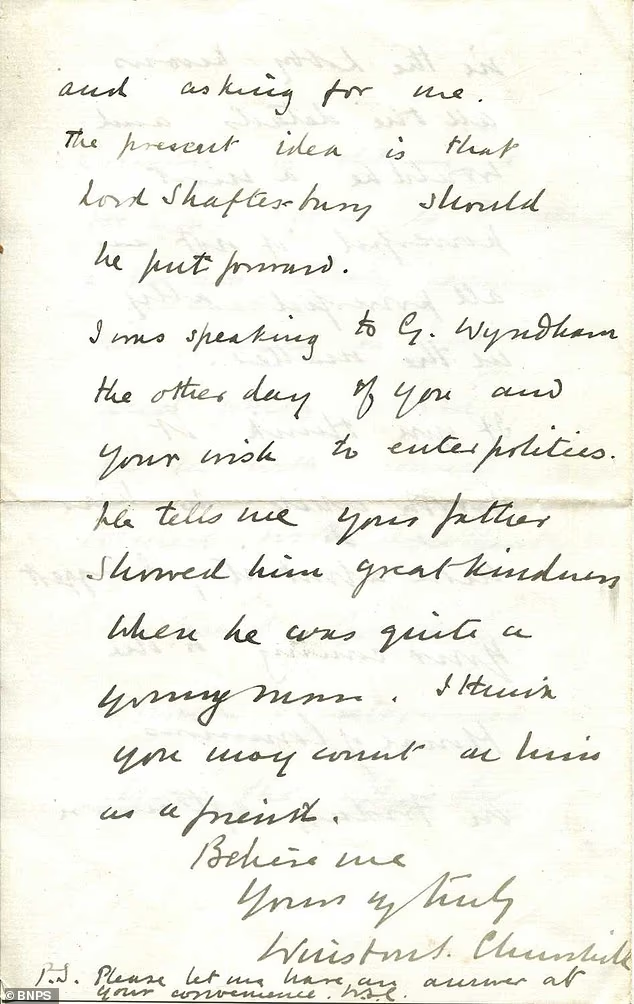 and asking for me.
The present idea is that
Lord Shaftesbury should
be put forward.
I was speaking to G. Wyndham
the other day of you and
your wish to enter politics.
He tells me your father
showed him great kindness
when he was quite a
young man. I think
you may count on him
as a friend.
Believe me
Yours vy truly
Winston S. Churchill
P.S. Please let me have an answer at
your convenience. WSC.
© BNPS